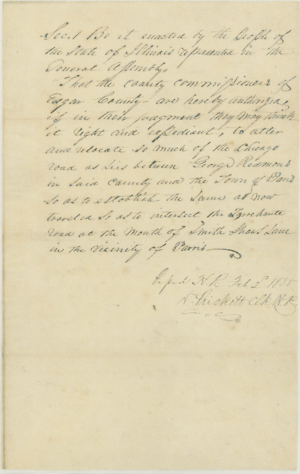 Sec 1. Be it enacted by the people of
the State of Illinois represented in the
General Assembly,
That the county commissioners of
Edgar County are hereby authorized,
if in their judgment they may think
it right and expedient, to alter
and relocate so much of the Chicago
road as lies between George
in said county and the Town of Paris
so as to establish the same as now
traveled so as to intersect the
road at the Mouth of Smith Lane
in the vicinity of Paris
H. R. Feb 2
Clk H. R.